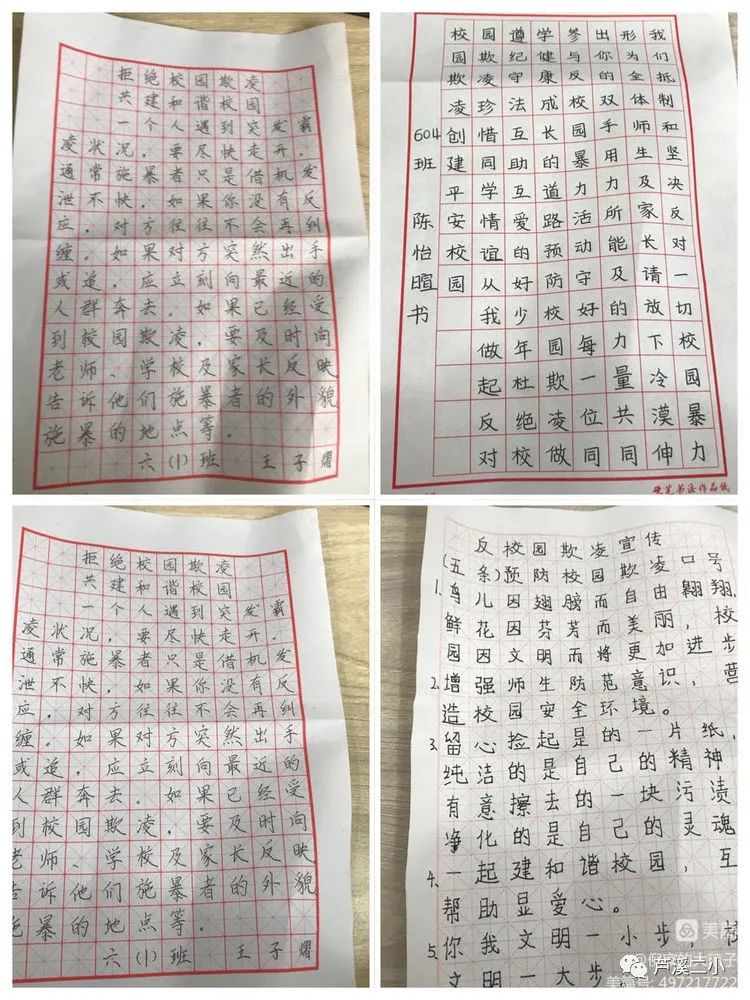 拒绝校园欺凌
共建和谐校园
一个人遇到突发霸
凌状况，要尽快走开，
通常施暴者只是借机发
泄不快，如果你没有反
应，对方往往不会再纠
缠。如果对方突然出手
或追，应立刻向最近的
人群奔去。如果已经受
到校园欺凌，要及时向
老师、学校及家长反映
告诉他们施暴者的外貌
施暴的地点等。
六(1)班 王子熠
我们抵制和坚决反对一切校园暴力
形为全体师生及家长请放下冷漠伸
出你的双手用力所能及的力量共同
参与反校园暴力活动守好每一位同
学健康成长的道路预防校园欺凌做
遵纪守法互助互爱的好少年杜绝校
园欺凌珍惜同学情谊从我做起反对
校园欺凌创建平安校园
604班 陈怡暄书
硬笔书法作品纸
拒绝校园欺凌
共建和谐校园
一个人遇到突发霸
凌状况，要尽快走开，
通常施暴者只是借机发
泄不快，如果你没有反
应，对方往往不会再纠
缠。如果对方突然出手
或追，应立刻向最近的
人群奔去。如果已经受
到校园欺凌，要及时向
老师、学校及家长反映
告诉他们施暴者的外貌
施暴的地点等。
六(1)班 王子熠
反校园欺凌宣传
(五条)预防校园欺凌口号
1、鸟儿因翅膀而自由翱翔，
鲜花因芬芳而美丽，校
园因文明而将更加进步
2、增强师生防范意识，营
造校园安全环境。
3、留心捡起是的一片纸，
纯洁的是自己的精神
有意擦去的一块污渍
净化的是自己的灵魂
4、一起建和谐校园，互
帮助显爱心。
5、你我文明一小步，校
文明一大步
美篇
芦溪二小
美篇号: 497217722